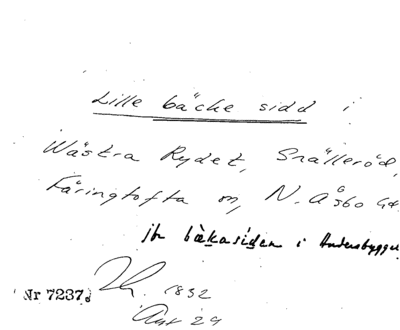 Lille bäcke sidd i
Wästra Rydet, Snälleröd,
Färingtofta sn, N. Åsbo hd.
jfr bäkasiden i Andersbygget
Nr 7237. 1832